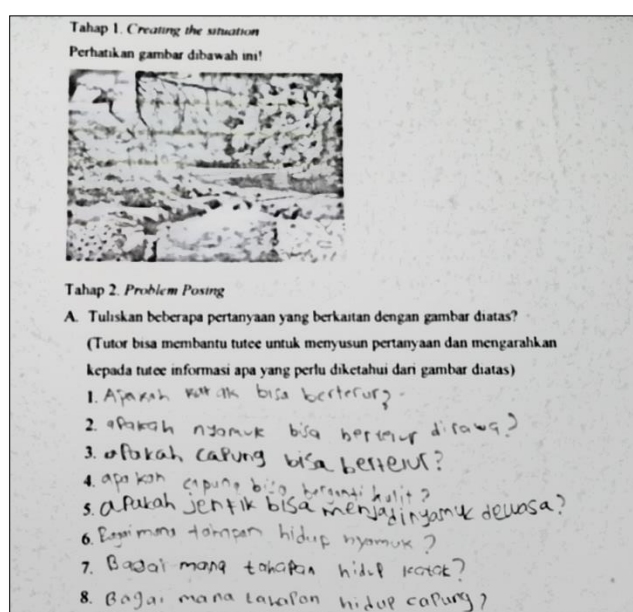 Tahap 1. Creating the situation
Perhatikan gambar dibawah ini!
Tahap 2. Problem Posing
A. Tuliskan beberapa pertanyaan yang berkaitan dengan gambar diatas?
(Tutor bisa membantu tutee untuk menyusun pertanyaan dan mengarahkan
kepada tutee informasi apa yang perlu diketahui dari gambar diatas)
1. Apakah katak bisa bertelur?
2. apakah nyamuk bisa bertelur dirawa?
3. apakah capung bisa bertelur?
4. apakah capung bisa berganti kulit?
5. apakah jentik bisa menjadi nyamuk dewasa?
6. Bagaimana tahapan hidup nyamuk?
7. Bagai mana tahapan hidup katak?
8. Bagai mana tahapan hidup capung?